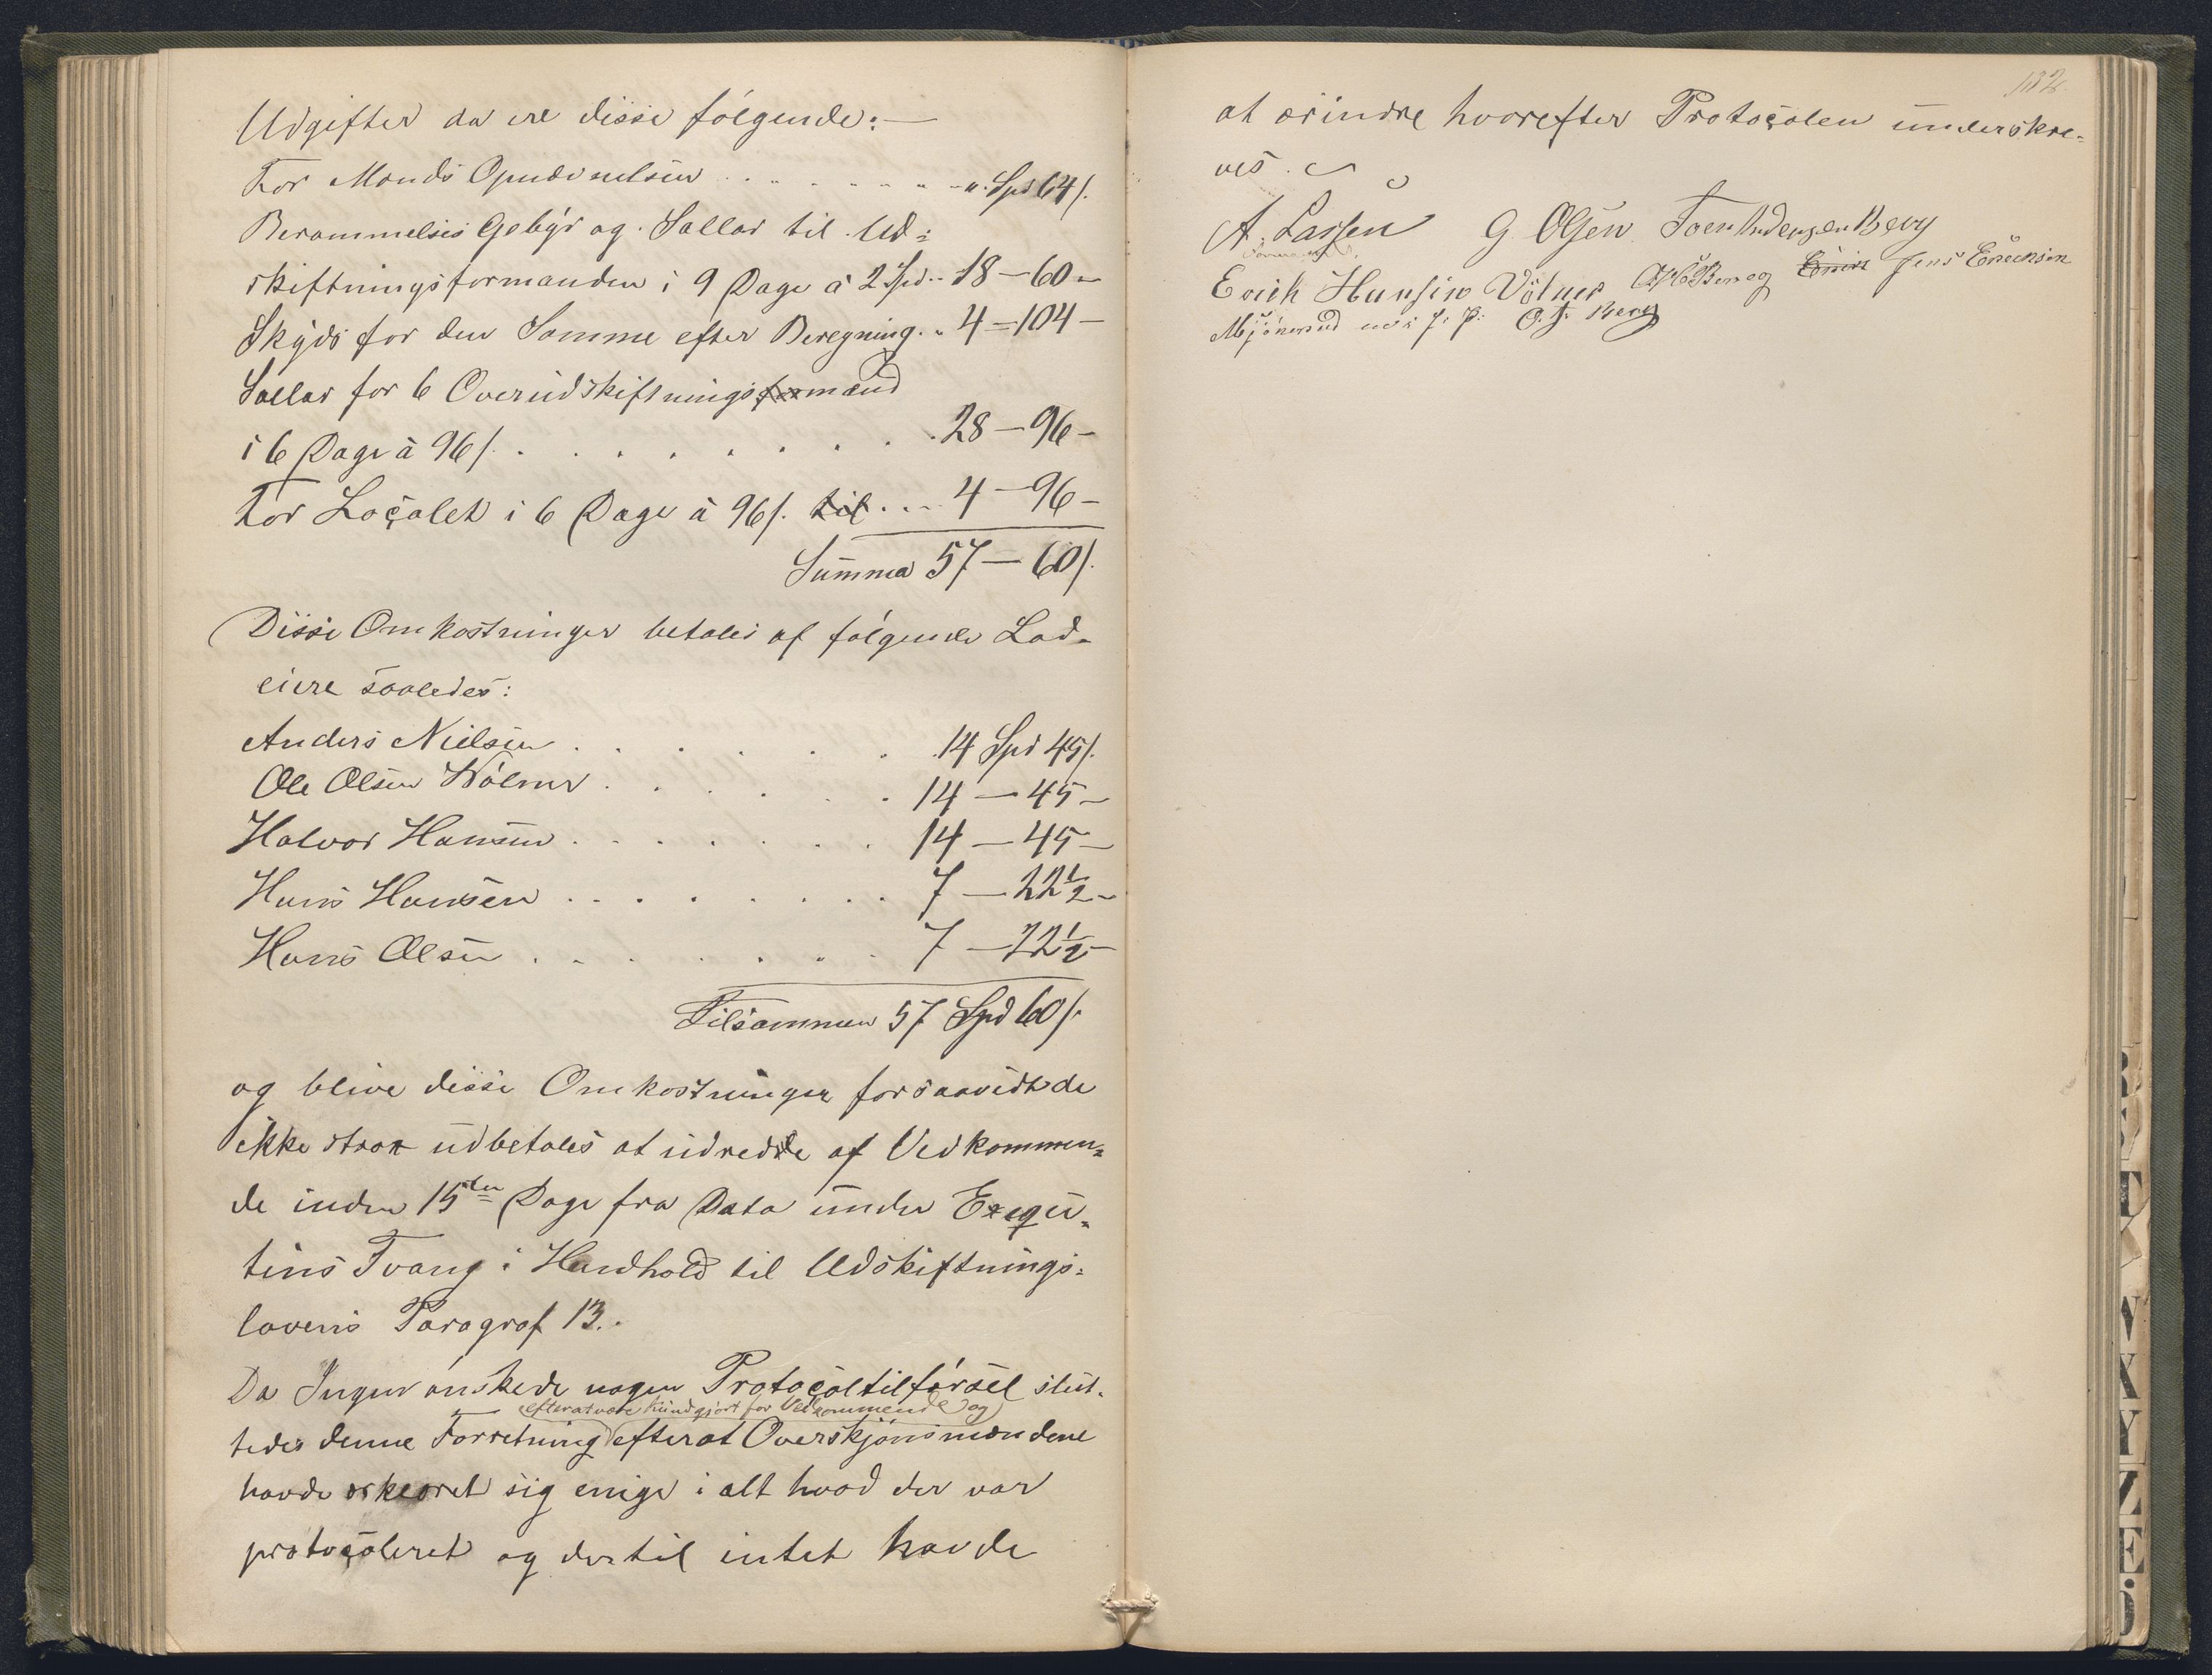 Udgifter da ere disse følgende:—
For Mands Opnævnelsen . . . . . . „ Spd 64 s.
Berammelses Gebyr og Sallar til Ud=
skiftningsformanden i 9 Dage a 2 Spd .. 18 — 60 „
Skyds for den Samme efter Beregning . „ 4 — 104 —
Sallar for 6 Overudskiftningsformænd
i 6 Dage à 96 s. . . . . . . . . 28 — 96 —
For Localet i 6 Dage à 96 s. til . . . 4 — 96 —
Summa 57 — 60 s.
Disse Omkostninger betales af følgende Lod=
eiere saaledes:
Anders Nielsen . . . . . . . 14 Spd 45 s.
Ole Olsen Wølner . . . . . . 14 — 45 —
Halvor Hansen . . . . . . . 14 — 45 —
Hans Hansen . . . . . . . . 7 — 22½ —
Hans Olsen . . . . . . . . 7 — 22½ —
Tilsammen 57 Spd 60 s.
og blive disse Omkostninger forsaavidt de
ikke strax udbetales at udrede af Vedkommen=
de inden 15ten Dage fra Dato under Exequ=
tions Tvang i Henhold til Udskiftnings=
lovens Paragraf 13.
Da Ingen ønskede nogen Protocoltilførsel slut=
efter at være kundgjort for Vedkommende og
tedes denne Forretning efterat Overskjønsmændene
havde erkeoret sig enige i alt hvad der var
protocoleret og dertil intet havde
132
at erindre hvorefter Protocolen underskre=
ves.
A. Lassen G. Olsen Toer Andersen Berg
Formand.
Erich Hansen Völner Erik Jens Ericksen
Mjönerud m. i. f. P. O. J. Berg